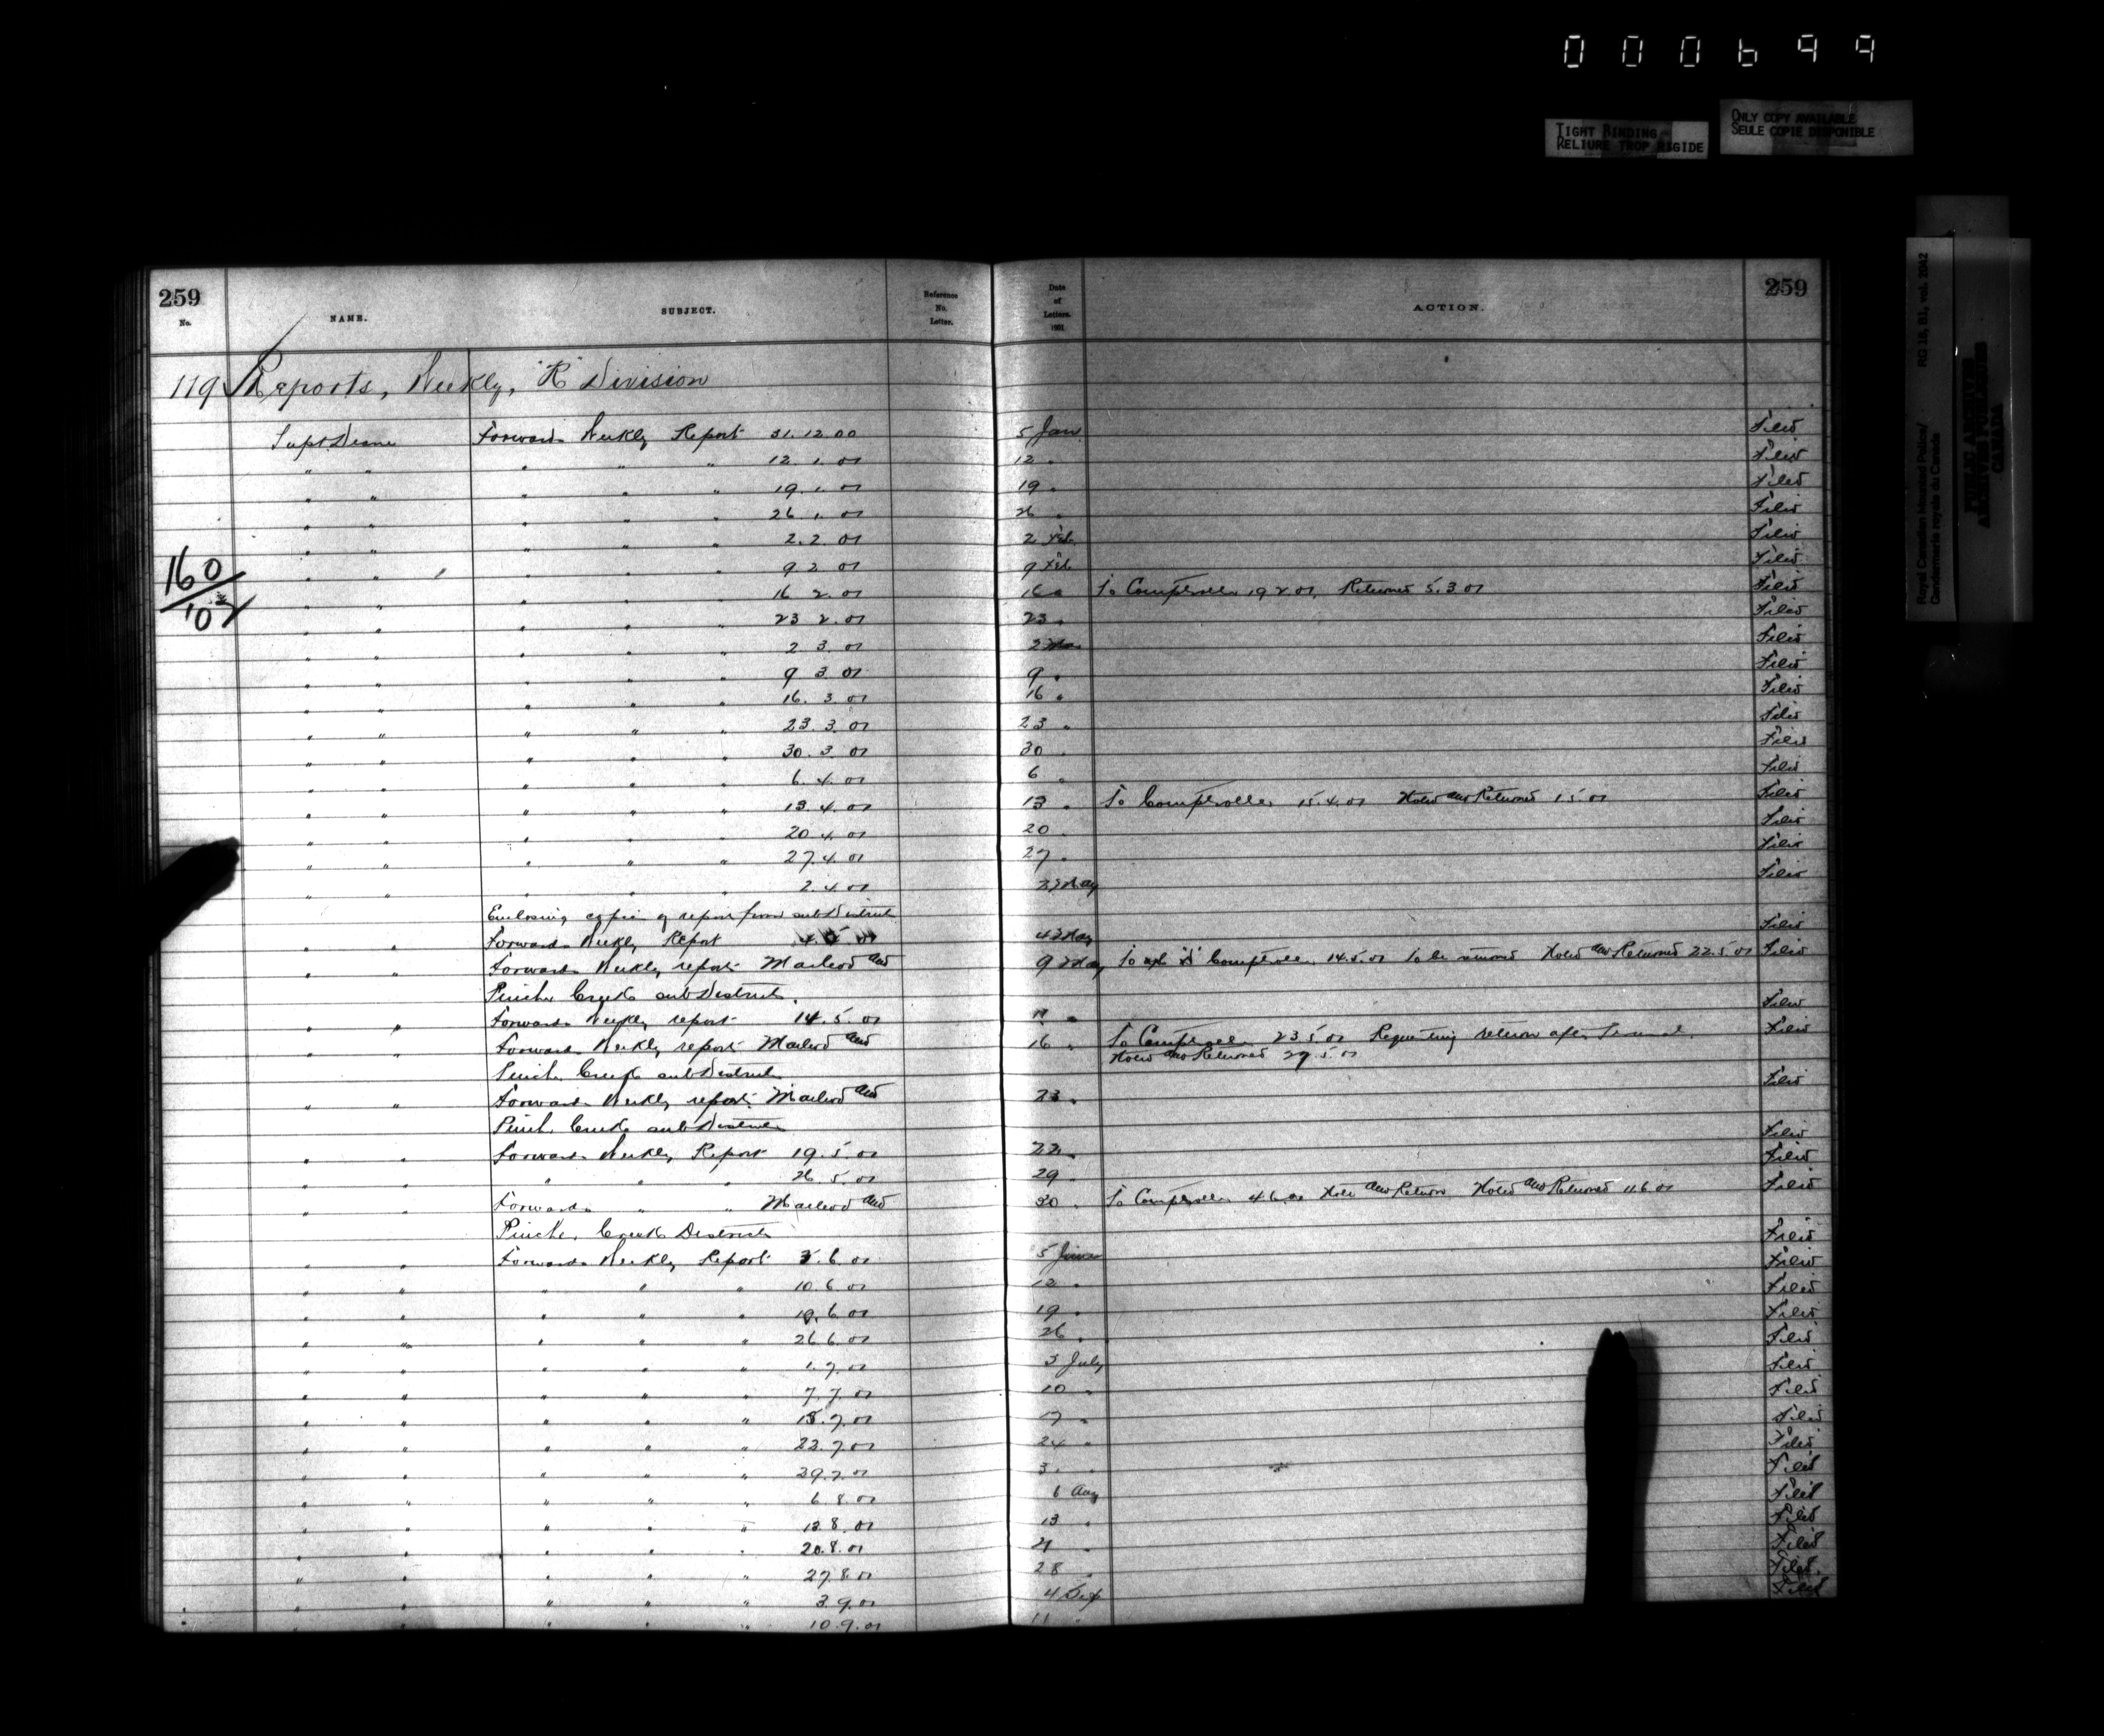 000699
TIGHT BINDING
RELIURE TROP RIGIDE
ONLY COPY AVAILABLE
SEULE COPIE DISPONIBLE
Royal Canadian Mounted Police/ RG 18, B1, vol. 2042
Gendarmerie royale du Canada
PUBLIC ARCHIVES
ARCHIVES PUBLIQUES
CANADA
259 259
No. NAME. SUBJECT. Reference No. Letter. Date of Letters. 1901. ACTION.
119 Reports, Weekly, "K" Division
Supt Deane Forwards Weekly Report 31.12.00 5 Jan Filed
" " " " " 12.1.01 12 " Filed
" " " " " 19.1.01 19 " Filed
" " " " " 26.1.01 26 " Filed
" " " " " 2.2.01 2 Feb Filed
" " " " " 9 2 01 9 Feb Filed
160/02
" " " " " 16 2.01 16 " To Comptroller 19 2.01. Returned 5.3 01 Filed
" " " " " 23 2.01 23 " Filed
" " " " " 2 3.01 2 Mar Filed
" " " " " 9 3 01 9 " Filed
" " " " " 16.3.01 16 " Filed
" " " " " 23.3.01 23 " Filed
" " " " " 30.3.01 30 " Filed
" " " " " 6.4.01 6 " Filed
" " " " " 13.4.01 13 " To Comptroller 15.4.01 Noted and Returned 1 5 01 Filed
" " " " " 20.4.01 20 " Filed
" " " " " 27.4.01 27 " Filed
" " " " " 2.4.01 2 May Filed
Enclosing copies of report from sub District
" " Forwards Weekly Report 4 May Filed
" " Forwards Weekly report Macleod and 9 May To Comptroller 14.5.01 to be returned Noted and Returned 22.5.01 Filed
Pincher Creek sub District.
" " Forwards Weekly report 14.5.01 Filed
" " Forwards Weekly report Macleod and 16 " To Comptroller 23 5 01 Requesting return after Filed
Noted and Returned 29.5.01
Pincher Creek sub District
" " Forwards Weekly report Macleod and 23 " Filed
Pincher Creek sub District
" " Forwards Weekly Report 19.5.01 22 " Filed
" " " " " 26.5.01 29 " Filed
" " Forwards " " Macleod and 30 " To Comptroller 4.6.01 Note and Return Noted and Returned 11.6.01 Filed
Pincher Creek District
" " Forwards Weekly Report 3.6.01 5 June Filed
" " " " " 10.6.01 12 " Filed
" " " " " 19.6.01 19 " Filed
" " " " " 26 6.01 26 " Filed
" " " " " 1.7.01 3 July Filed
" " " " " 7.7.01 10 " Filed
" " " " " 15.7.01 17 " Filed
" " " " " 22.7.01 24 " Filed
" " " " " 29.7.01 Filed
" " " " " 6.8.01 6 Aug Filed
" " " " " 13.8.01 13 " Filed
" " " " " 20.8.01 21 " Filed
" " " " " 27.8.01 28 " Filed
" " " " " 3.9.01 4 Sep Filed
" " " " " 10.9.01 11 "